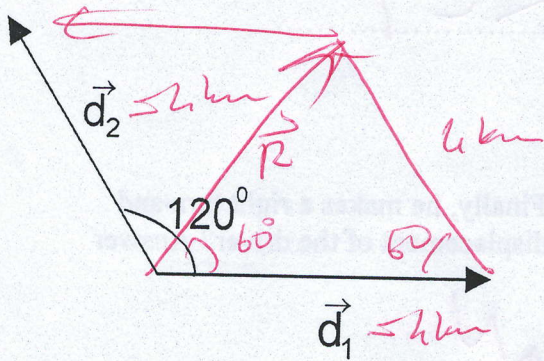 d₂ = 4km
4km
R
120°
60°
60
d₁ = 4km